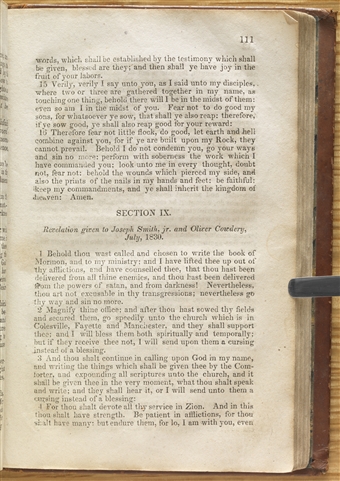 111
words, which shall be established by the testimony which shall
be given, blessed are they; and then shall ye have joy in the
fruit of your labors.
15 Verily, verily I say unto you, as I said unto my disciples,
where two or three are gathered together in my name, as
touching one thing, behold there will I be in the midst of them:
even so am I in the midst of you. Fear not to do good my
sons, for whatsoever ye sow, that shall ye also reap: therefore,
if ye sow good, ye shall also reap good for your reward:
16 Therefore fear not little flock, do good, let earth and hell
combine against you, for if ye are built upon my Rock, they
cannot prevail. Behold I do not condemn you, go your ways
and sin no more; perform with soberness the work which I
have commanded you: look unto me in every thought, doubt
not, fear not: behold the wounds which pierced my side, and
also the prints of the nails in my hands and feet: be faithful:
keep my commandments, and ye shall inherit the kingdom of
heaven: Amen.
SECTION IX.
Revelation given to Joseph Smith, jr. and Oliver Cowdery,
July, 1830.
1 Behold thou wast called and chosen to write the book of
Mormon, and to my ministry; and I have lifted thee up out of
thy afflictions, and have counselled thee, that thou hast been
delivered from all thine enemies, and thou hast been delivered
from the powers of satan, and from darkness! Nevertheless,
thou art not excusable in thy transgressions; nevertheless go
thy way and sin no more.
2 Magnify thine office; and after thou hast sowed thy fields
and secured them, go speedily unto the church which is in
Colesville, Fayette and Manchester, and they shall support
thee; and I will bless them both spiritually and temporally;
but if they receive thee not, I will send upon them a cursing
instead of a blessing.
3 And thou shalt continue in calling upon God in my name,
and writing the things which shall be given thee by the Com-
forter, and expounding all scriptures unto the church, and it
shall be given thee in the very moment, what thou shalt speak
and write; and they shall hear it, or I will send unto them a
cursing instead of a blessing:
4 For thou shalt devote all thy service in Zion. And in this
thou shalt have strength. Be patient in afflictions, for thou
shalt have many: but endure them, for lo, I am with you, even